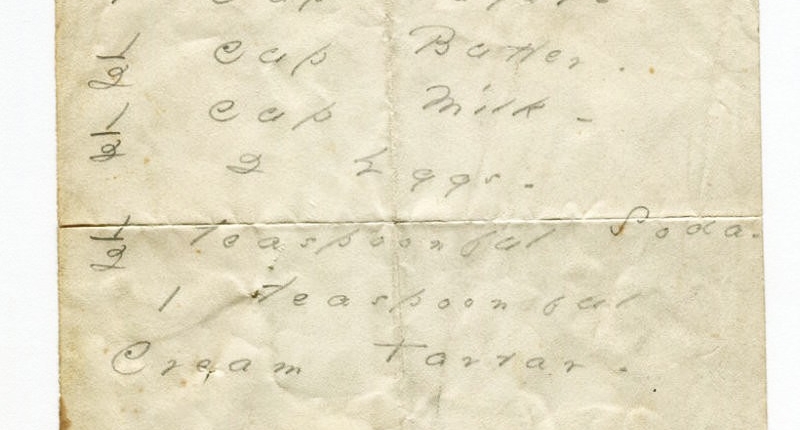 1 Cup
½ Cup Butter.
½ Cup Milk.
2 Eggs.
½ Teaspoonful Soda.
1 teaspoonful
Cream Tartar.